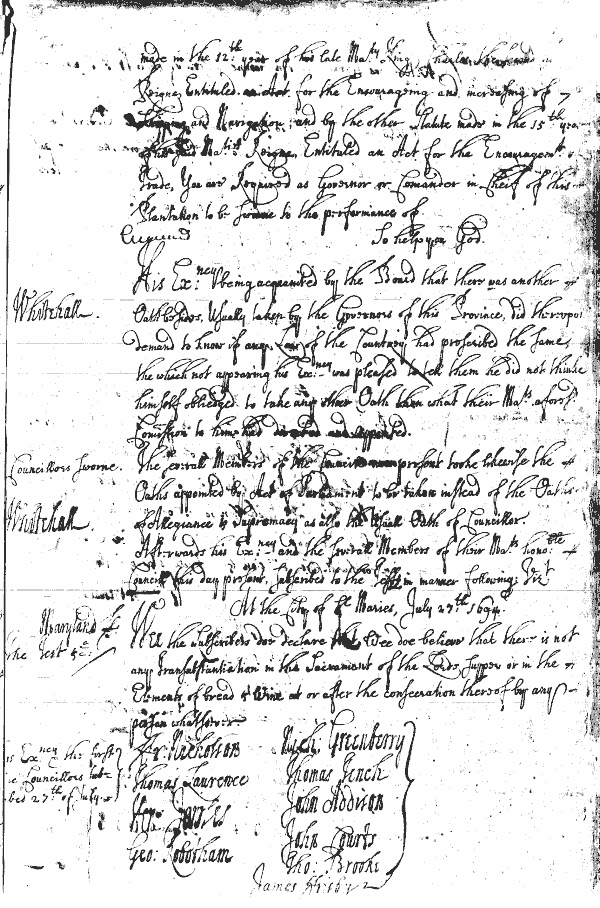 made in the 12th year of his late Maty King Charles the
Reigne Entituled an Act for the Encourageing and increasing of
Shipping and Navigation, and by the other Statute made in the 15th year
of his said Maties Reigne, Entituled an Act for the Encouragemt
Trade, You are Required as Governor or Comander in Cheif of this
Plantation to be sworne to the performance of
So help you God.
His Ex:ncy being acquainted by the Board that there was another
Whitehall.
Oath besides, usually taken by the Governors of this Province, did thereupon
demand to know if any Law of the Countrey had prescribed the same,
the which not appearing his Ex:ncy was pleased to tell them he did not thinke
himself obliedged to take any other Oath then what their Mats aforesd
Comission to him had directed and appointed.
Councillors sworne.
The severall Members of the Councill present tooke likewise the
Oaths appointed by Act of Parliament to be taken instead of the Oaths
Whitehall.
of Allegiance & Supremacy as also the usuall Oath of Councillor.
Afterwards his Ex:ncy and the severall Members of their Mats honoble
Councill this day present, subscribed to the Test in manner following; Vizt
At the City of St Maries, July 27th 1694.
Maryland ss
the Test &c:
Wee the subscribers doe declare that Wee doe believe that there is not
any transubstantiation in the Sacrament of the Lords Supper or in the
Elements of bread & Wine at or after the consecration thereof by any
person whatsoever
is Exncy the first
Councillors
27th of July
Fr: Nicholson
Nich: Greenberry
Thomas Laurence
Thomas Tench
Hen: Jowles
John Addison
Geo: Robotham
John Courts
Tho: Brooke
James